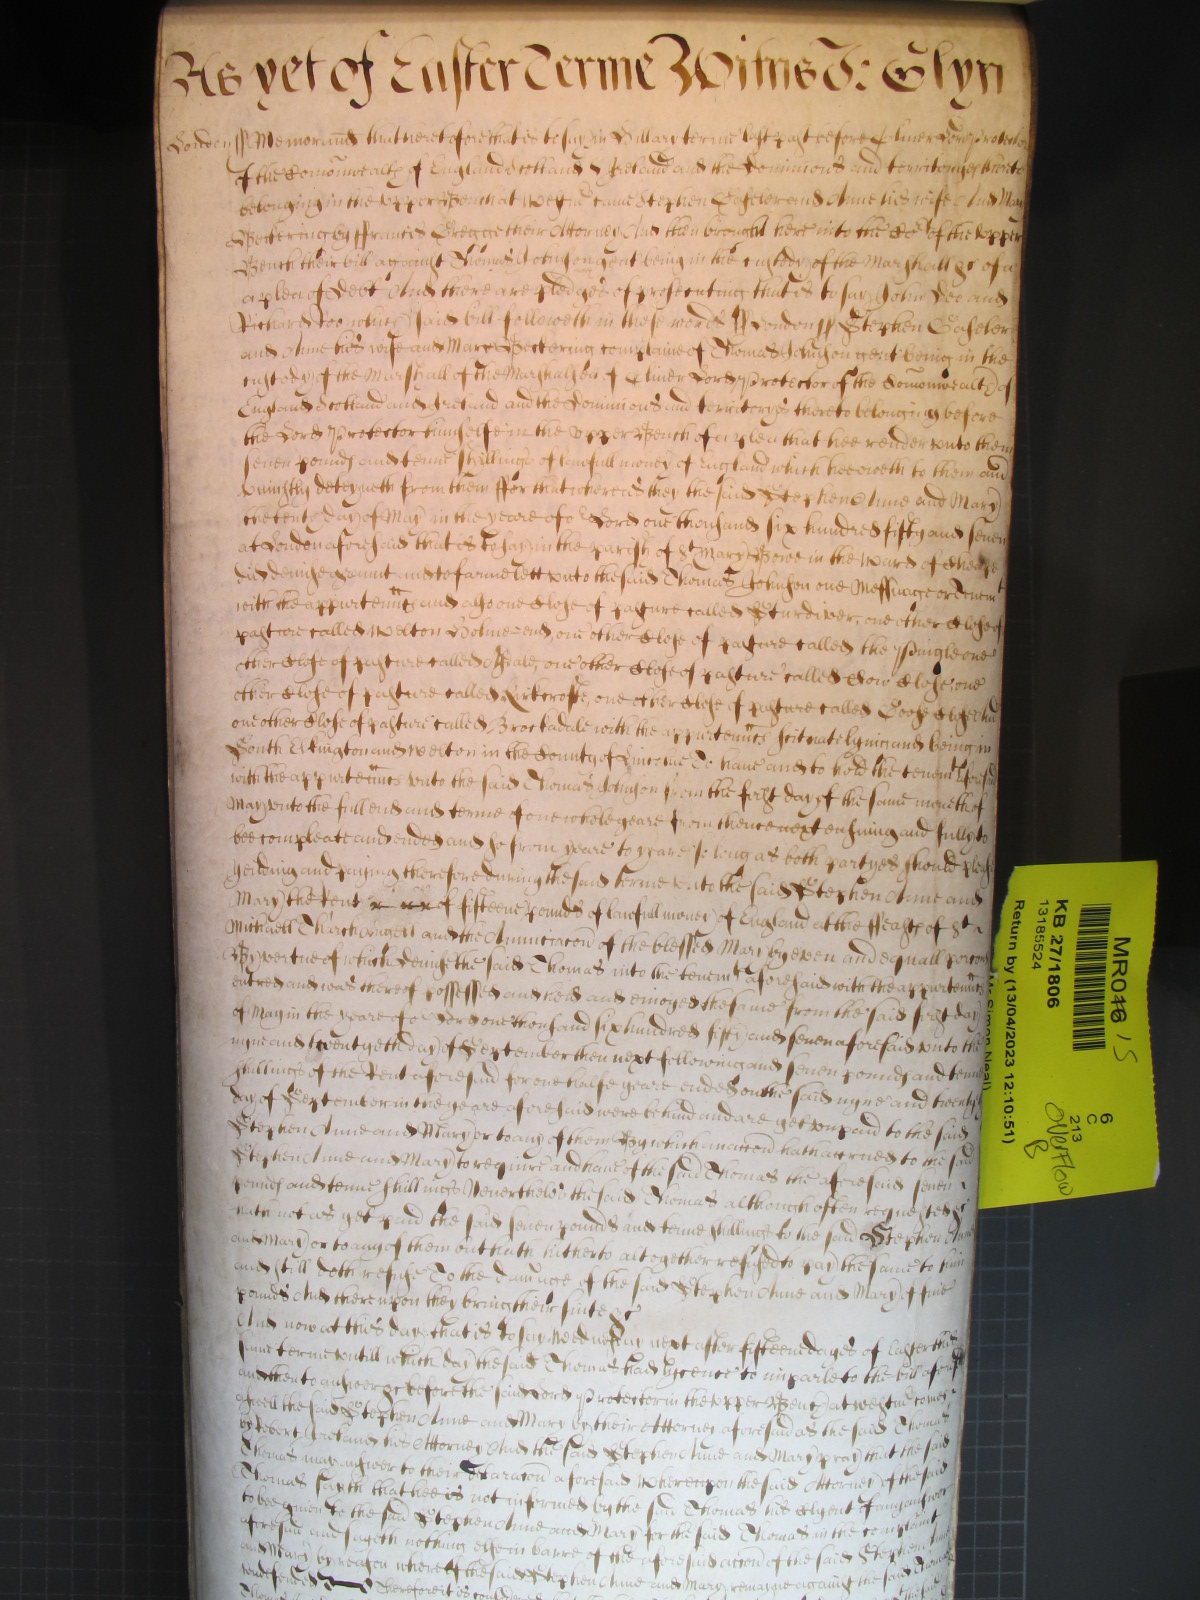 As yet of Easter Terme Witnes J: Glyn
London ss Memorand that heretofore that is to say in Hillary terme last past before Oliver Lord Protector
of the Comonwealth of England Scotland & Ireland and the Dominions and territoryes thereto
belonging in the upper Bench at Westm came Stephen and Anne his wife And Mary
Pickering by ffrancis Gregge their Attorney And then brought here into the Co of the upper
Bench their bill against Thomas Johnson gent being in the custody of the Marshall &c of a
a plea of Debt And there are pledges of prosecuting that is to say John Doe and
Richard Roe which said bill followeth in these words ss London ss Stephen
and Anne his wife and Mary Pickering complaine of Thomas Johnson gent being in the
custody of the Marshall of the Marshalsea of Oliver Lord Protector of the Comonwealth of
England Scotland and Ireland and the Dominions and territoryes thereto belonging before
the Lord Protector himselfe in the upper Bench of a plea that hee render unto them
seven pounds and tenne shillings of lawfull money of England which hee oweth to them and
uniustly deteyneth from them ffor that whereas they the said Stephen Anne and Mary
the tenth day of May in the yeare of o Lord one thousand six hundred fifty and seven
at London aforesaid that is to say in the parish of St Mary Bowe in the Ward of Cheape
did demise graunt and to farme lett unto the said Thomas Johnson one Messuage or Tenemt
with the appurtenncs and also one Close of pasture called Sturdiver, one other Close of
pasture called Welton Holme-end, one other Close of pasture called the Pingle one
other Close of pasture called Dale, one other Close of pasture called Cow Close, one
other Close of pasture called Kirkcroft, one other Close of pasture called Goose Close And
one other Close of pasture called Brockadale with the appurtenncs scituate lying and being in
South Elkington and Welton in the County of Lincolne To have and to hold the tenemts aforesaid
with the appurtenncs unto the said Thomas Johnson from the first day of the same moneth of
May unto the full end and terme of one whole yeare from thence next ensuing and fully to
bee compleate and ended and so from yeare to yeare so long as both partyes should please
yeilding and paying therefore during the said terme unto the said Stephen Anne and
Mary the Rent of fifteene pounds of lawfull money of England at the ffeasts of St
Michaell Tharchangell and the Annunciacon of the blessed Mary by even and equall porcons
By vertue of which demise the said Thomas into the tenemts aforesaid with the appurtenncs
entred and was thereof possessed and held and enioyed the same from the said first day
of May in the yeare of o Lord one thousand six hundred fifty and seven aforesaid unto the
nyne and twentyeth day of September then next following and seven pounds and tenne
shillings of the Rent aforesaid for one halfe yeare ended on the said nyne and twenty
day of September in the yeare aforesaid were behind and are yet unpaid to the said
Stephen Anne and Mary or to any of them By which an accon hath accrued to the said
Stephen Anne and Mary to require and have of the said Thomas the aforesaid seven
pounds and tenne shillings Neverthelesse the said Thomas although often requested &c
hath not as yet paid the said seven pounds and tenne shillings to the said Stephen Anne
and Mary or to any of them but hath hitherto altogether refused to pay the same to him
and still doth refuse To the damage of the said Stephen Anne and Mary of five
pounds And thereupon they bring their suite &c
And now at this day that is to say Wednesday next after fifteene dayes of Easter this
same terme untill which day the said Thomas had lycence to imparle to the bill aforesd
and then to answer &c before the said Lord Protector in the upper Bench at Westm come
aswell the said Stephen Anne and Mary by their Attorney aforesaid as the said Thomas
by Robert his Attorney And the said Stephen Anne and Mary pray that the said
Thomas may answer to their Declaracon aforesaid Whereupon the said Attorney of the said
Thomas sayth that hee is not informed by the said Thomas his Clyent of any answer
to bee given to the said Stephen Anne and Mary for the said Thomas in the complaint
aforesaid and sayeth nothing else in barre of the aforesaid accon of the said Stephen Anne
and Mary by reason whereof the said Stephen Anne and Mary remayne against the said Thomas
undefended Therefore it is considered
MR046 15
KB 27/1806
13185524
Return by (13/04/2023 12:10:51)
Mr Simon Neal)
6
C
213
Overflow
B